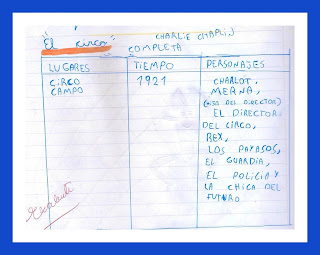 "El circo" CHARLIE CHAPLIN
COMPLETA
LUGARES TIEMPO PERSONAJES
CIRCO 1921 CHARLOT,
CAMPO MERNA,
(HIJA DEL DIRECTOR)
EL DIRECTOR
DEL CIRCO,
REX,
LOS PAYASOS,
EL GUARDIA,
EL POLICIA Y
LA CHICA DEL
FUTURO